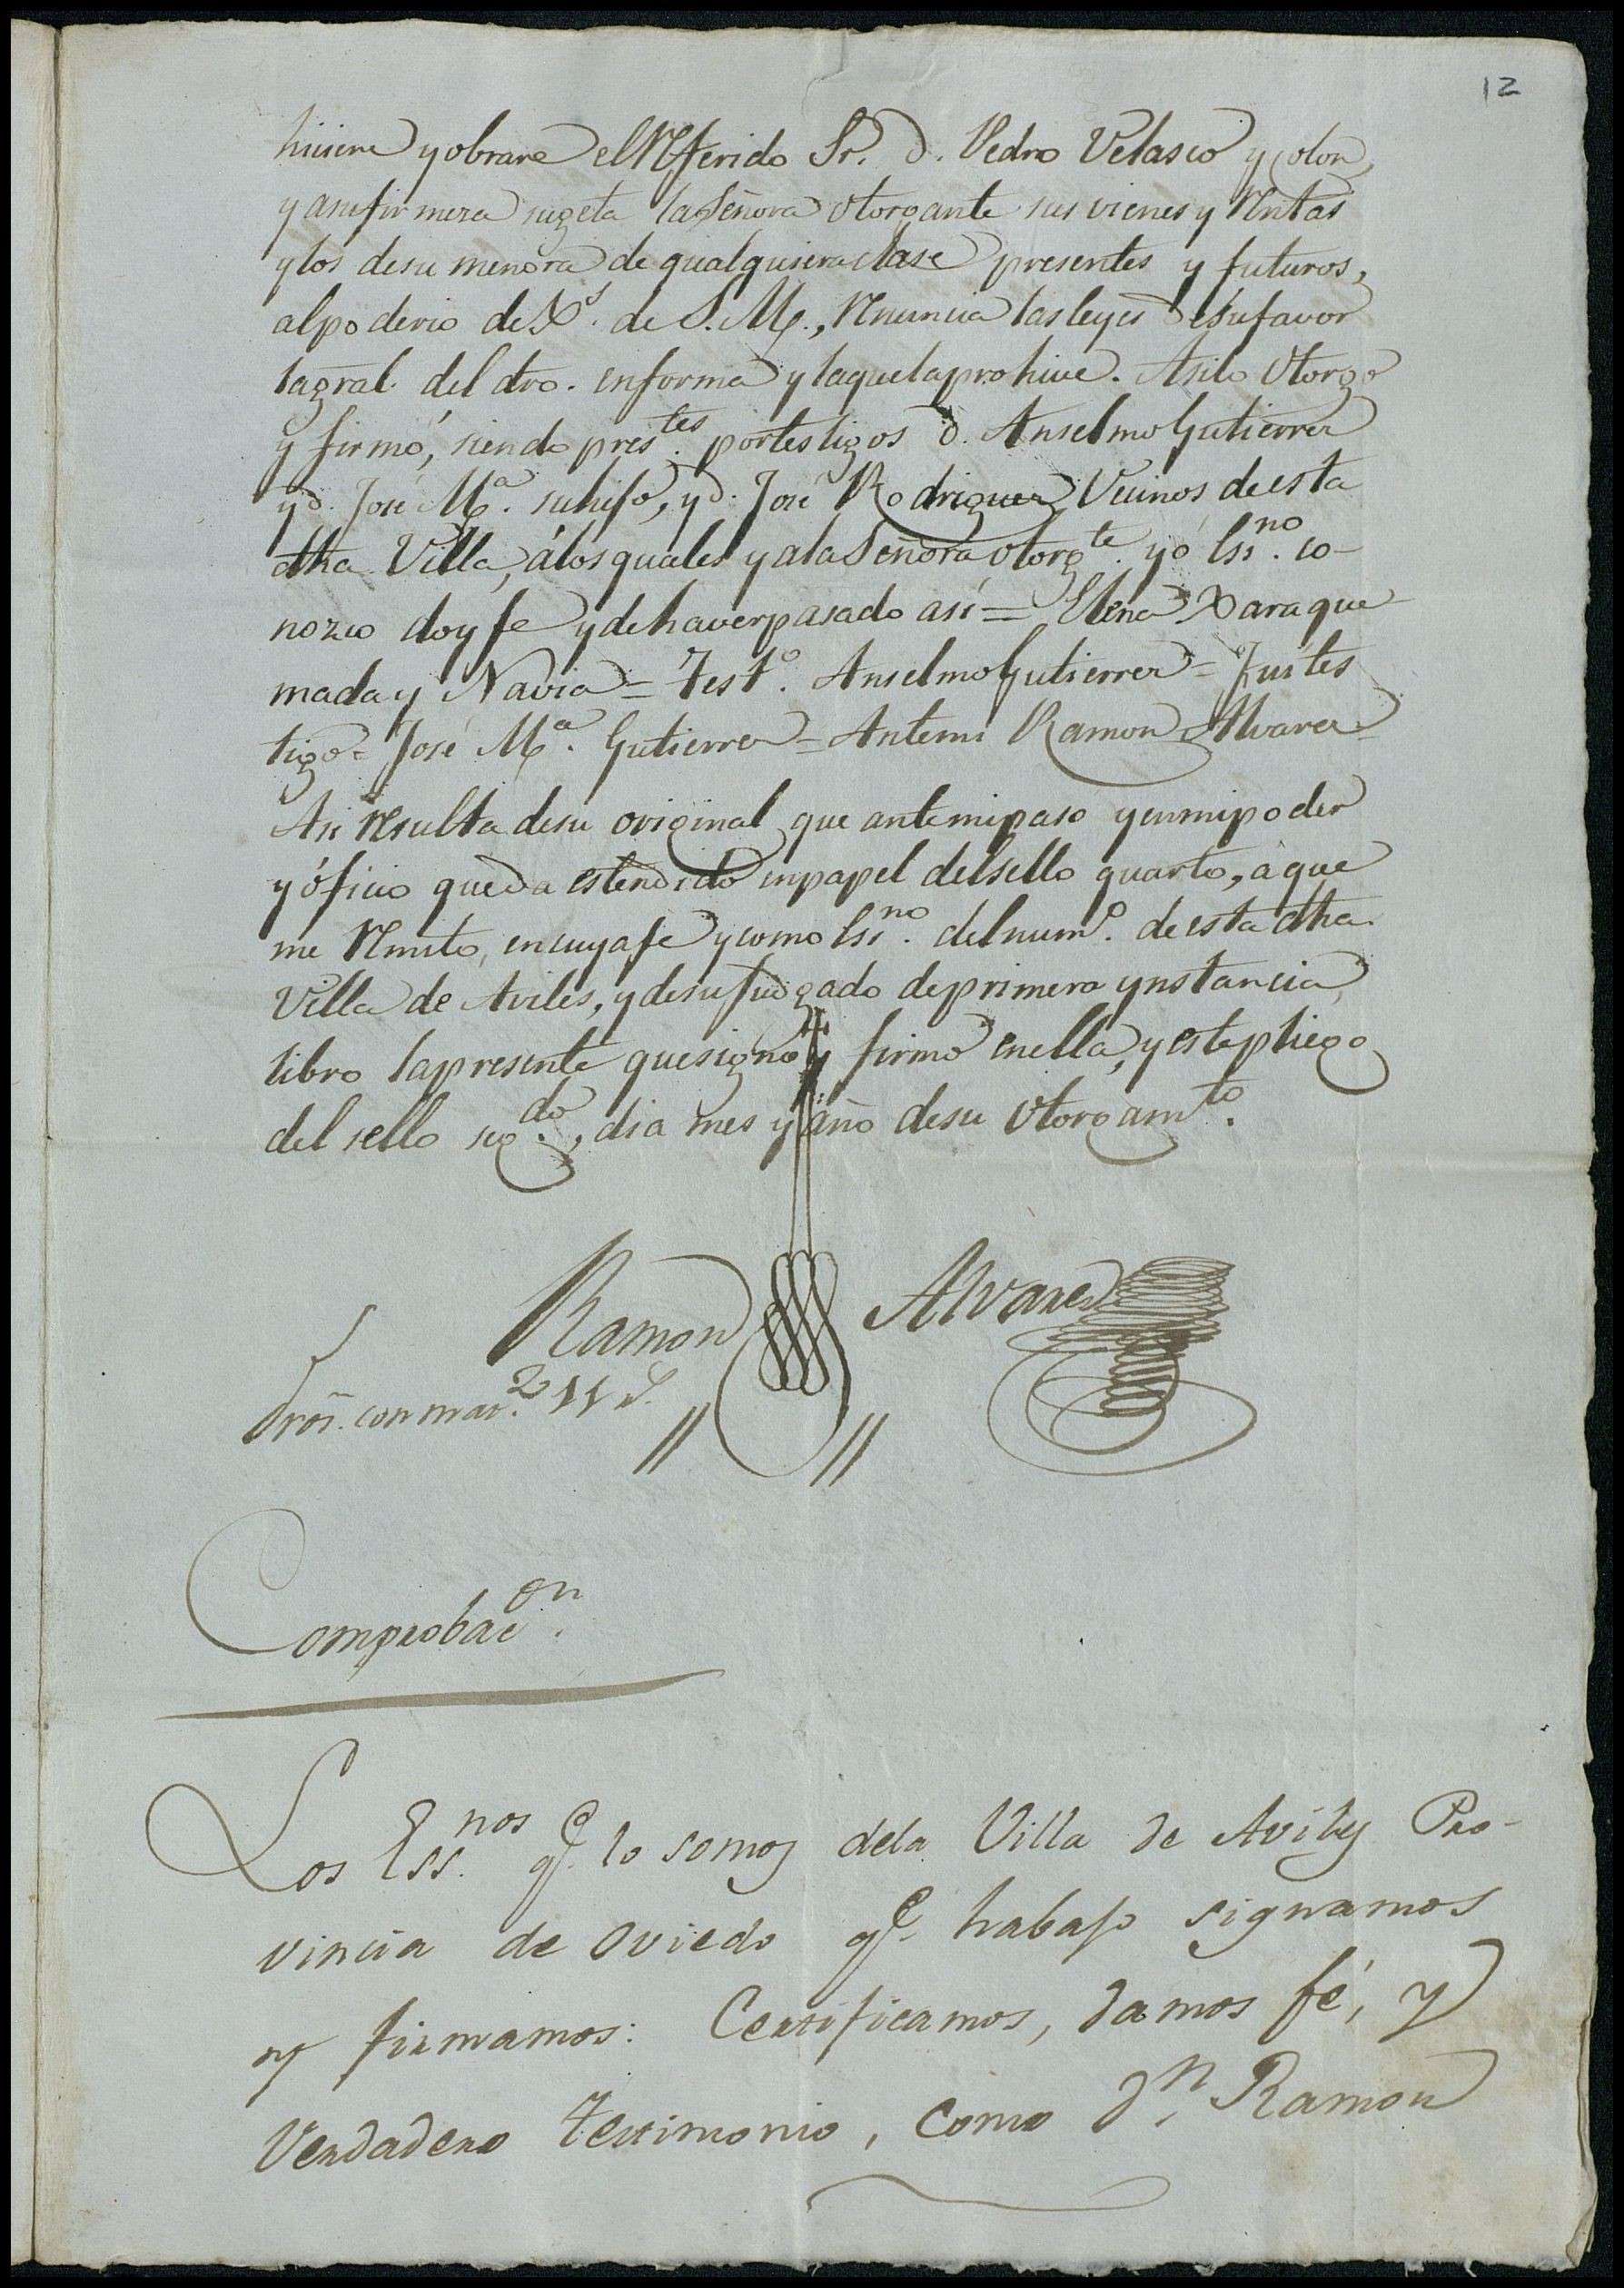 12
hiciere y obrare el referido Sr. D. Pedro Velasco y Colon,
y a su firmeza sugeta la Señora otorgante sus vienes y rentas
y los de su menora de qualquiera clase presentes y futuros,
al poderio de Xs. de S. M., renuncia las leyes de su favor
la gral. del dro. en forma y la que la prohive. Asi lo otorgo
y firmó, siendo pres.tes por testigos D. Anselmo Gutierrez
y D. José M.ª su hijo, y D. José Rodriguez Vecinos de esta
dha. Villa, á los quales y a la Señora otorg.te yó Esi.no co-
nozco doy fe y de haver pasado así = Elena Xaraque
mada y Navia = Test.o Anselmo Gutierrez = Fuí tes
tigo = José M.ª Gutierrez = Antemi Ramon Alvarez =
Asi resulta de su original que ante mi paso y en mi poder
y óficio queda estendido en papel del sello quarto, a que
me remito, en cuya fe y como Esi.no del num.o de esta dha.
Villa de Aviles, y de su Juzgado de primera ynstancia
libro la presente que signo y firmo en ella, y este pliego
del sello seg.do, dia mes y año de su otorgam.to.
Ramon Alvarez
Comprobac.on
Los Ess.nos q.e lo somos de la Villa de Aviles Pro-
vincia de Oviedo q.e habajo signamos
y firmamos: Certificamos, damos fé, y
Verdadero testimonio, como D.n Ramon